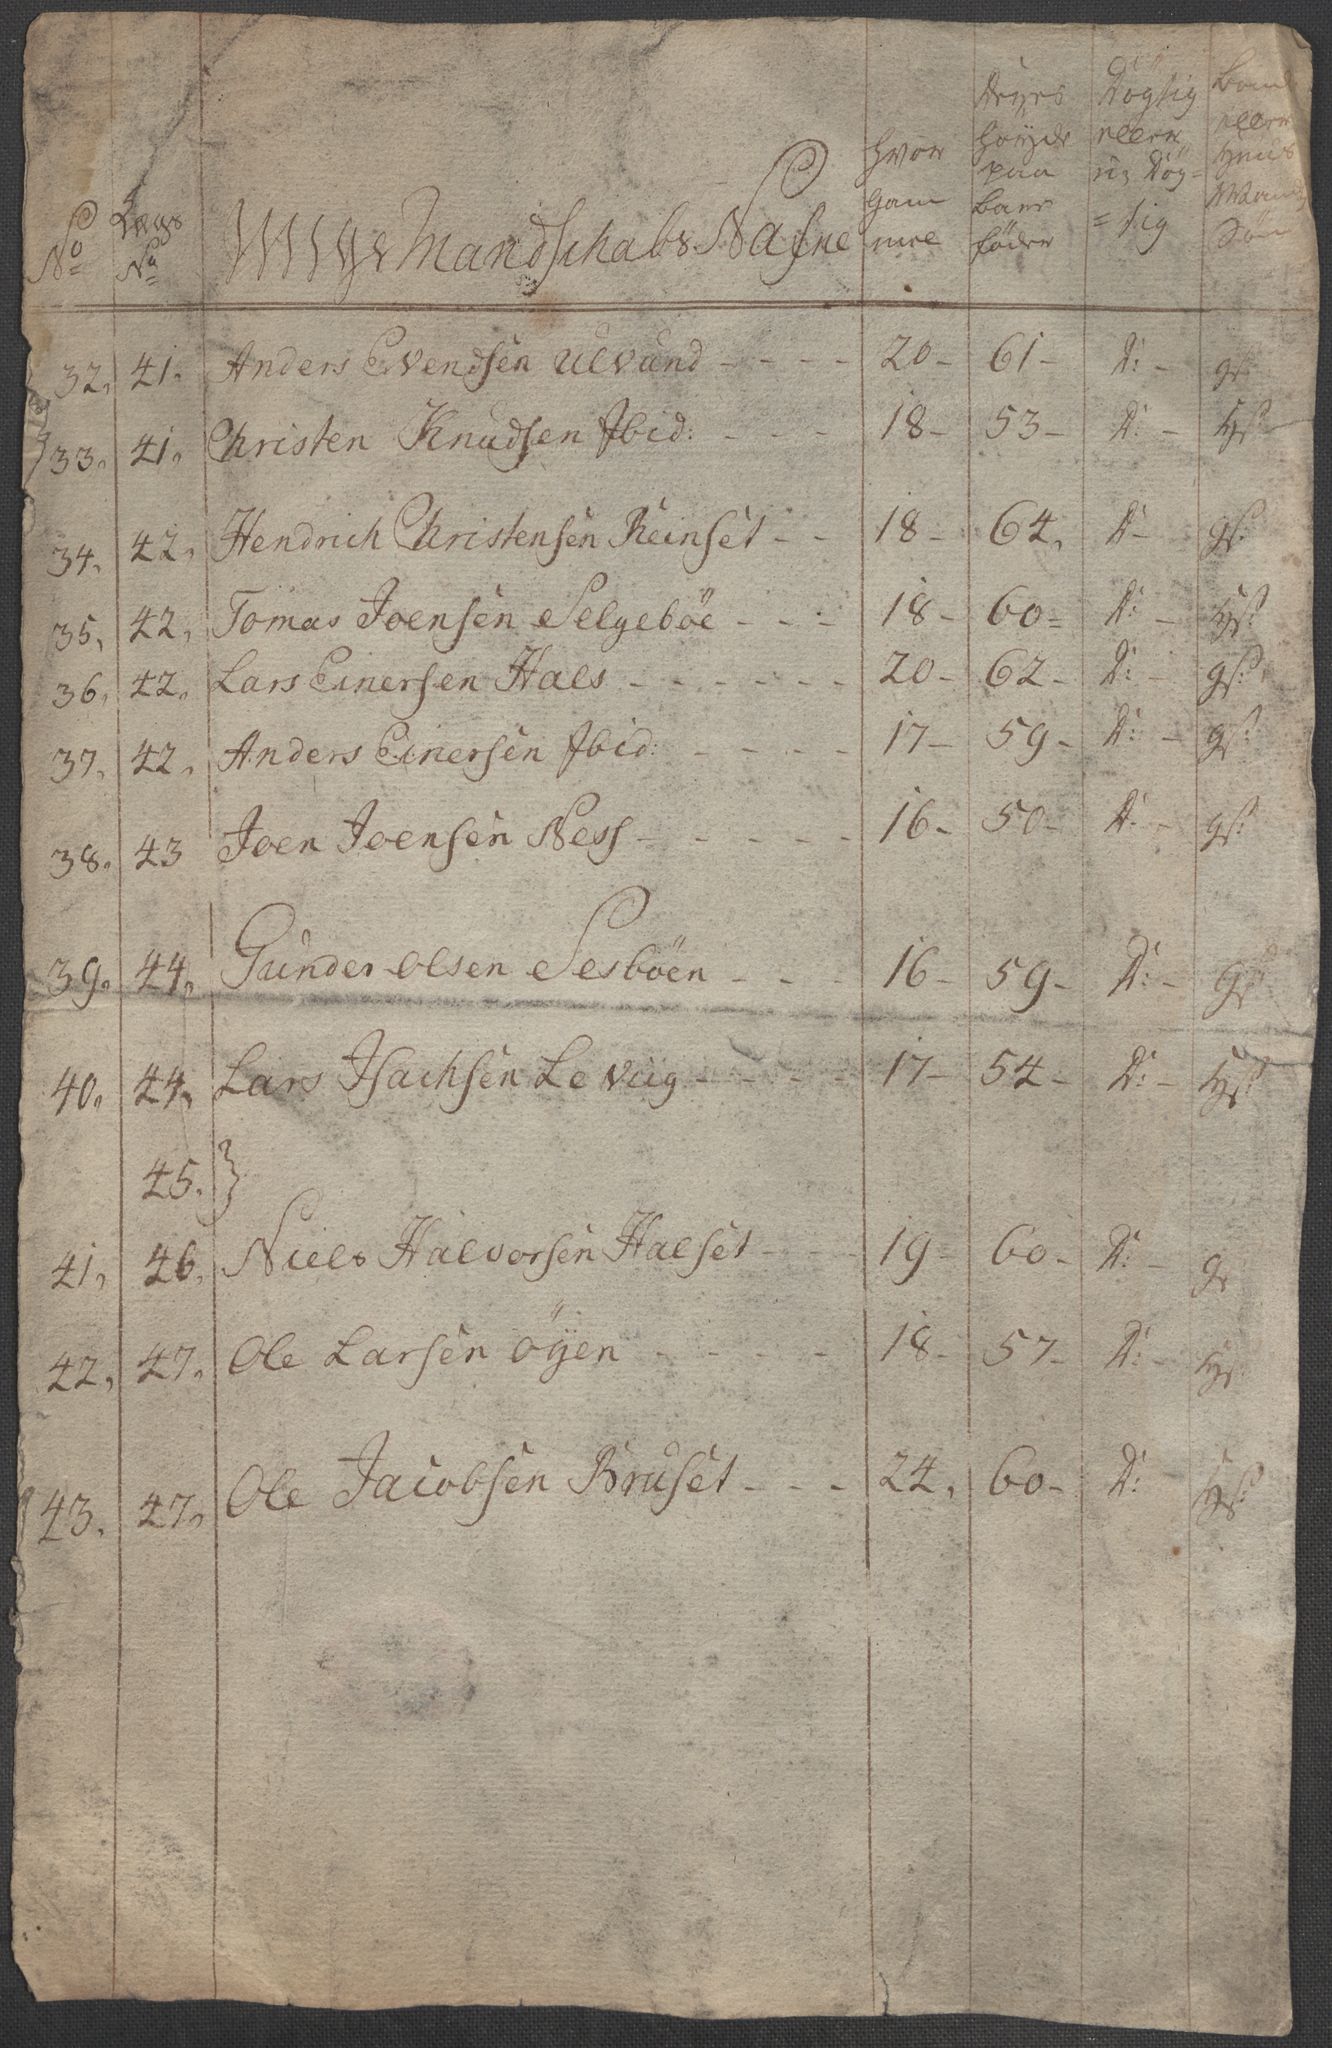 No
Lægs No
Unge Mandschabs Nafne
hvor Gam mel
Deres höyde paa bare föder
Dögtig eller u, dög= =tig
Bonde eller Huus Mands Sön
32, 41. Anders Evendsen Ulvund - - - - 20- 61- D: - gs:
33, 41, Christen Knudsen Ibid: - - - 18- 53- D: - Hs:
34, 42, Hendrich Christensen Reinset - - 18- 64, D- gs:
35, 42, Tomas Joensen Selgeböe - - - 18- 60= D: - Hs:
36, 42, Lars Einersen Hals - - - - - - 20- 62- D: - gs:
37, 42, Anders Einersen Ibid: - - - - 17- 59- D: - gs:
38. 43 Joen Joensen Ness - - - - - 16- 50- D: - gs:
39, 44, Gunder Olsen Sesböen - - - 16- 59- D: - gs
40, 44, Lars Isachsen Le viig - - - - 17- 54- D: - Hs
45. }
41, 46, Niels Halvorsen Halset - - - 19- 60- D: - gs
42, 47, Ole Larsen Öyen - - - - 18- 57- D: - Hs:
43, 47, Ole Jacobsen Bruset - - - 24, 60- D: Hs: